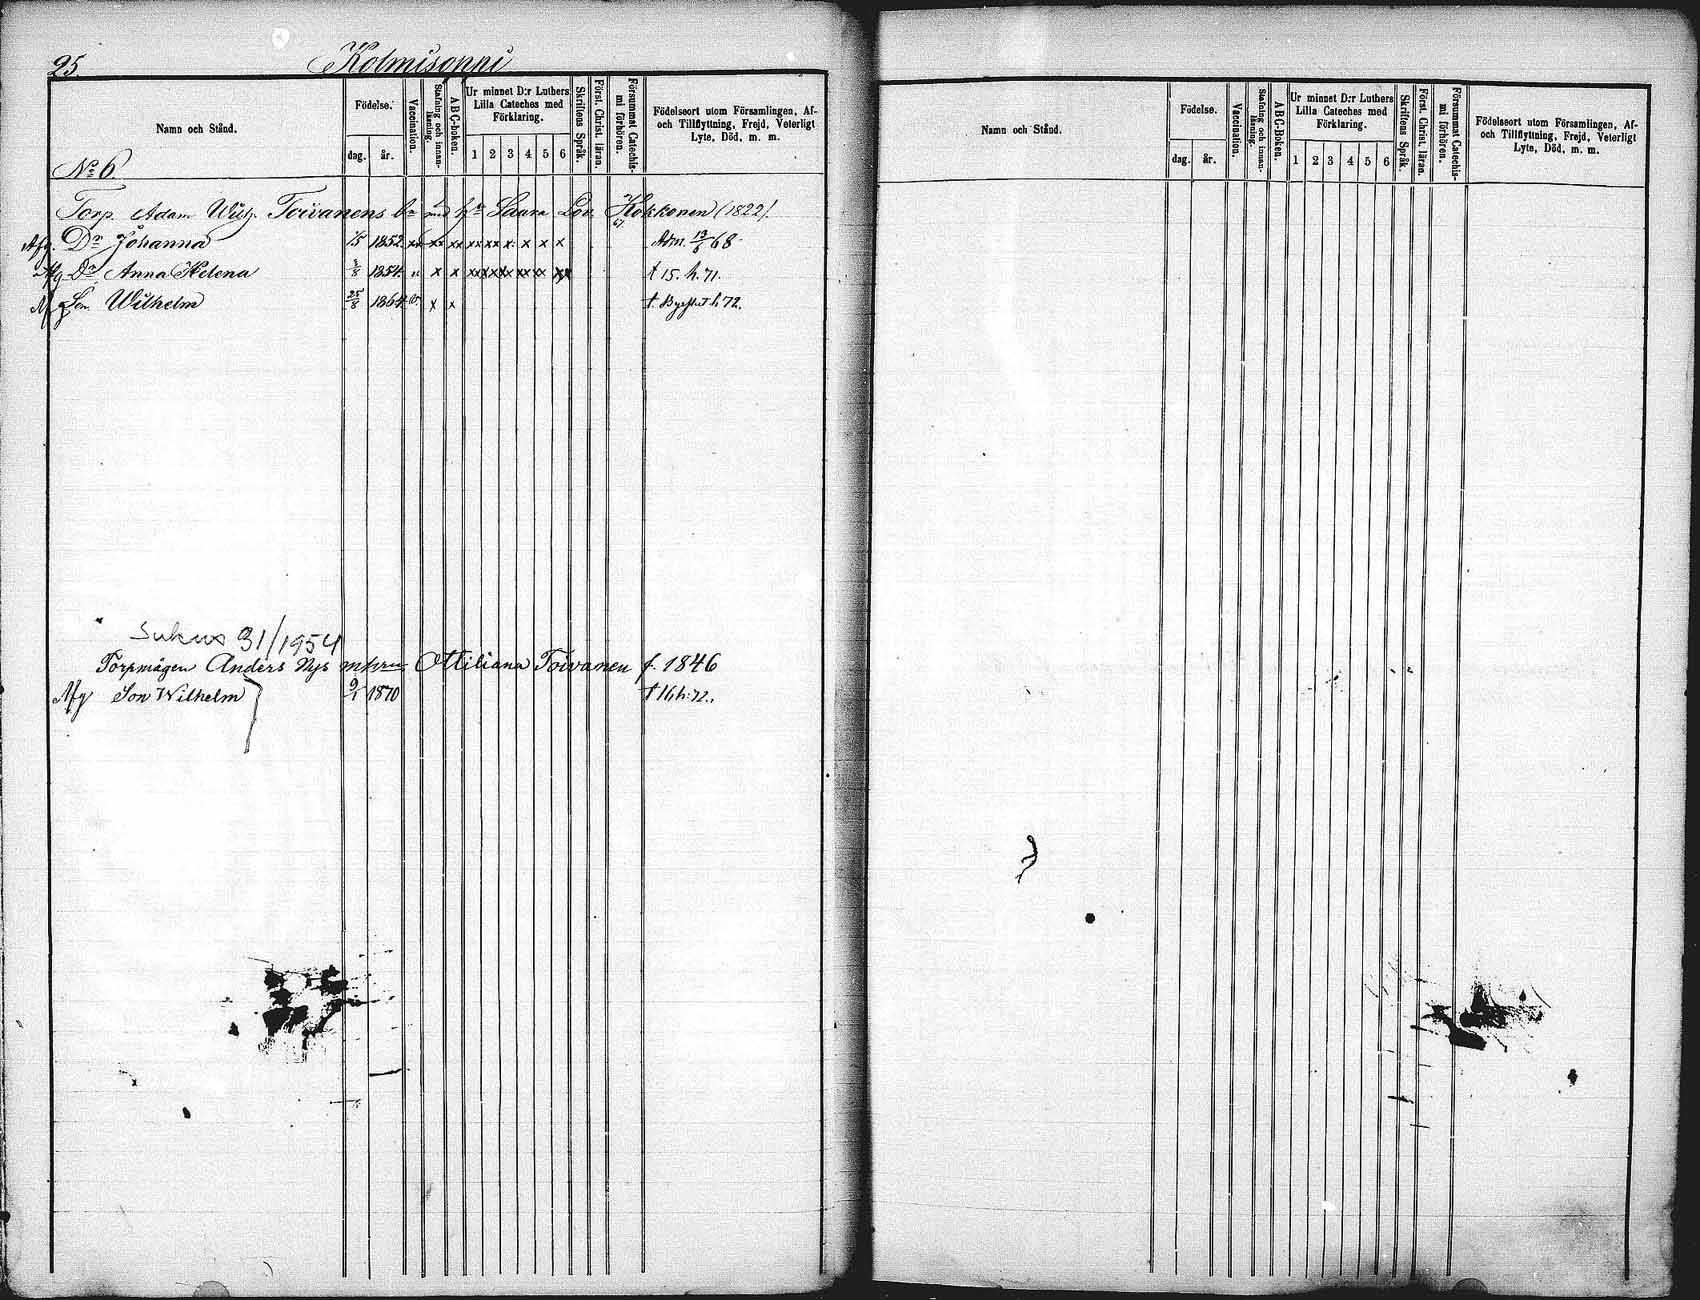 25.
Kolmisoppi
Namn och Stånd.
Födelse.
dag. år.
Vaccination.
Stafning och innan-läsning.
ABC-boken.
Ur minnet D:r Luthers Lilla Cateches med Förklaring.
1 2 3 4 5 6
Skriftens Språk.
Först. Christ. läran.
Försummat Catechis-mi förhören.
Födelseort utom Församlingen, Af-
och Tillflyttning, Frejd, Veterligt
Lyte, Död, m. m.
No 6
Torp. Adam Wilh. Toivanens med Saara Lov. Kokkonen (1822).
Afg. Dr Johanna 1/5 1852 xx xx xx xx xx x x x x Adm. 13/6 68
Afg Dr Anna Helena 3/8 1854 " x x † 15. h. 71.
Son Wilhelm 25/8 1864 x x h 72.
Sukus 31/1954
Torpmågen Anders Nys Ottiliana Toivanen f. 1846
Afg Son Wilhelm 9/1 1870 † 16 h: 72.
Namn och Stånd.
Födelse.
dag. år.
Vaccination.
Stafning och innan-läsning.
ABC-Boken.
Ur minnet D:r Luthers Lilla Cateches med Förklaring.
1 2 3 4 5 6
Skriftens Språk.
Först. Christ. läran.
Försummat Catechis-mi förhören.
Födelseort utom Församlingen, Af-
och Tillflyttning, Frejd, Veterligt
Lyte, Död, m. m.